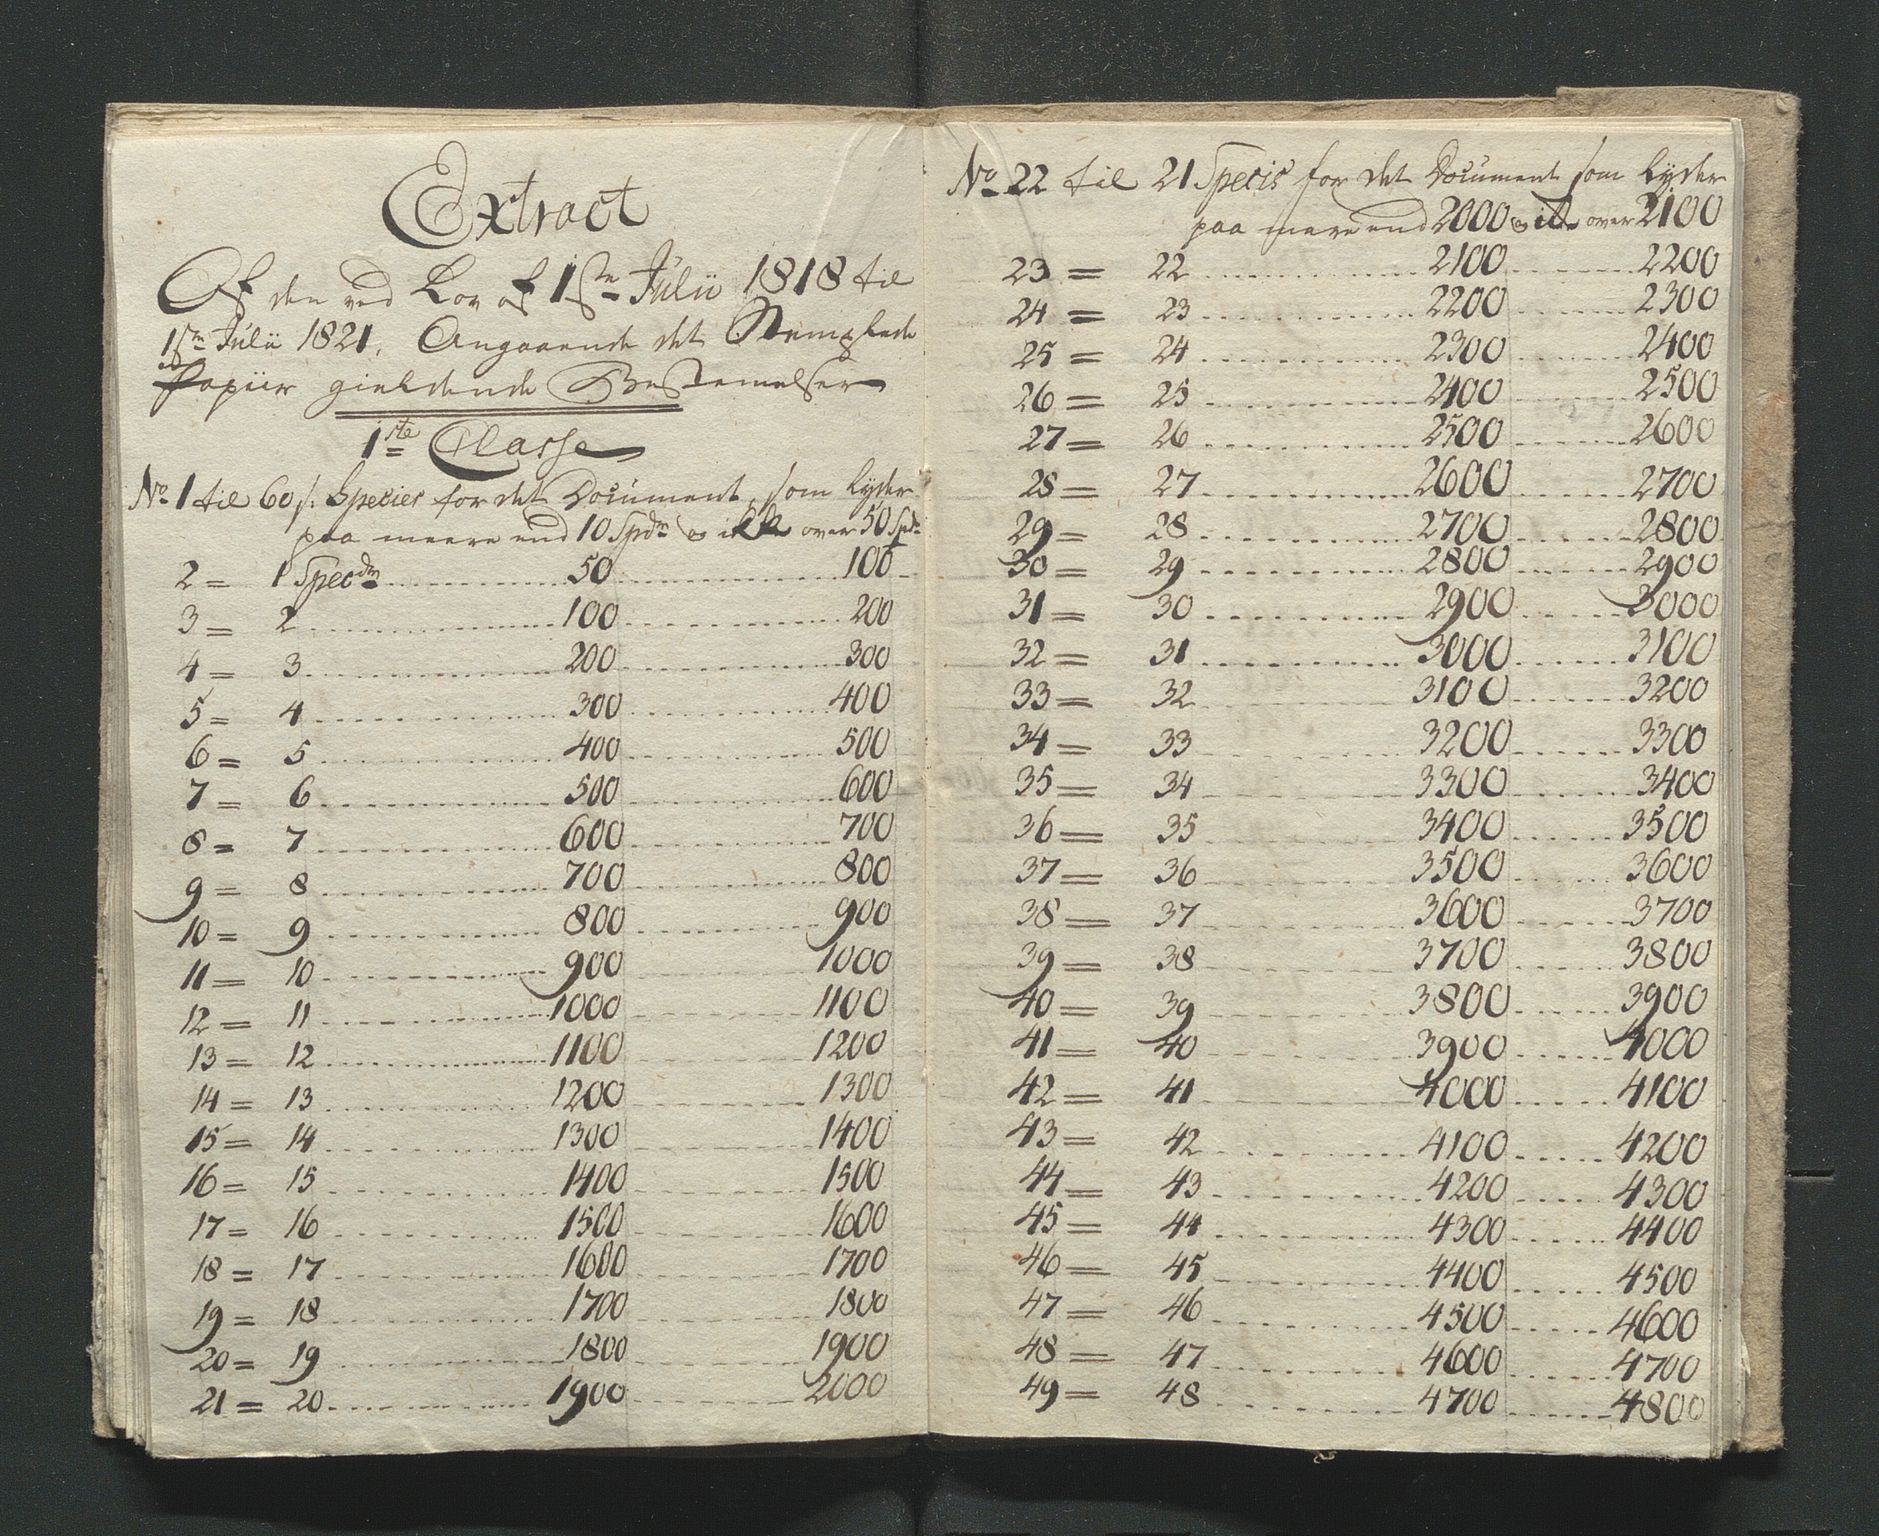 Extract
Af den ved Lov af 1ste Julii 1818 til
1ste Julii 1821. Angaaende det Stemplede
Papiir gieldende Bestemelser
1ste Classe
No 1 til 60 s. Species for det Document, som lyder
paa meere end 10 Spdr og ikke over 50 Spdr
2 = 1 Specdr 50 100
3 = 2 100 200
4 = 3 200 300
5 = 4 300 400
6 = 5 400 500
7 = 6 500 600
8 = 7 600 700
9 = 8 700 800
10 = 9 800 900
11 = 10 900 1000
12 = 11 1000 1100
13 = 12 1100 1200
14 = 13 1200 1300
15 = 14 1300 1400
16 = 15 1400 1500
17 = 16 1500 1600
18 = 17 1600 1700
19 = 18 1700 1800
20 = 19 1800 1900
21 = 20 1900 2000
No 22 til 21 Specis for det Document som lyder
paa mere end 2000 og ikke over 2100
23 = 22 2100 2200
24 = 23 2200 2300
25 = 24 2300 2400
26 = 25 2400 2500
27 = 26 2500 2600
28 = 27 2600 2700
29 = 28 2700 2800
30 = 29 2800 2900
31 = 30 2900 3000
32 = 31 3000 3100
33 = 32 3100 3200
34 = 33 3200 3300
35 = 34 3300 3400
36 = 35 3400 3500
37 = 36 3500 3600
38 = 37 3600 3700
39 = 38 3700 3800
40 = 39 3800 3900
41 = 40 3900 4000
42 = 41 4000 4100
43 = 42 4100 4200
44 = 43 4200 4300
45 = 44 4300 4400
46 = 45 4400 4500
47 = 46 4500 4600
48 = 47 4600 4700
49 = 48 4700 4800